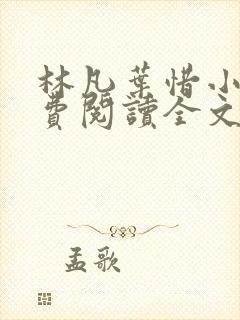 林凡葉惜小
費閱讀全文
孟歌